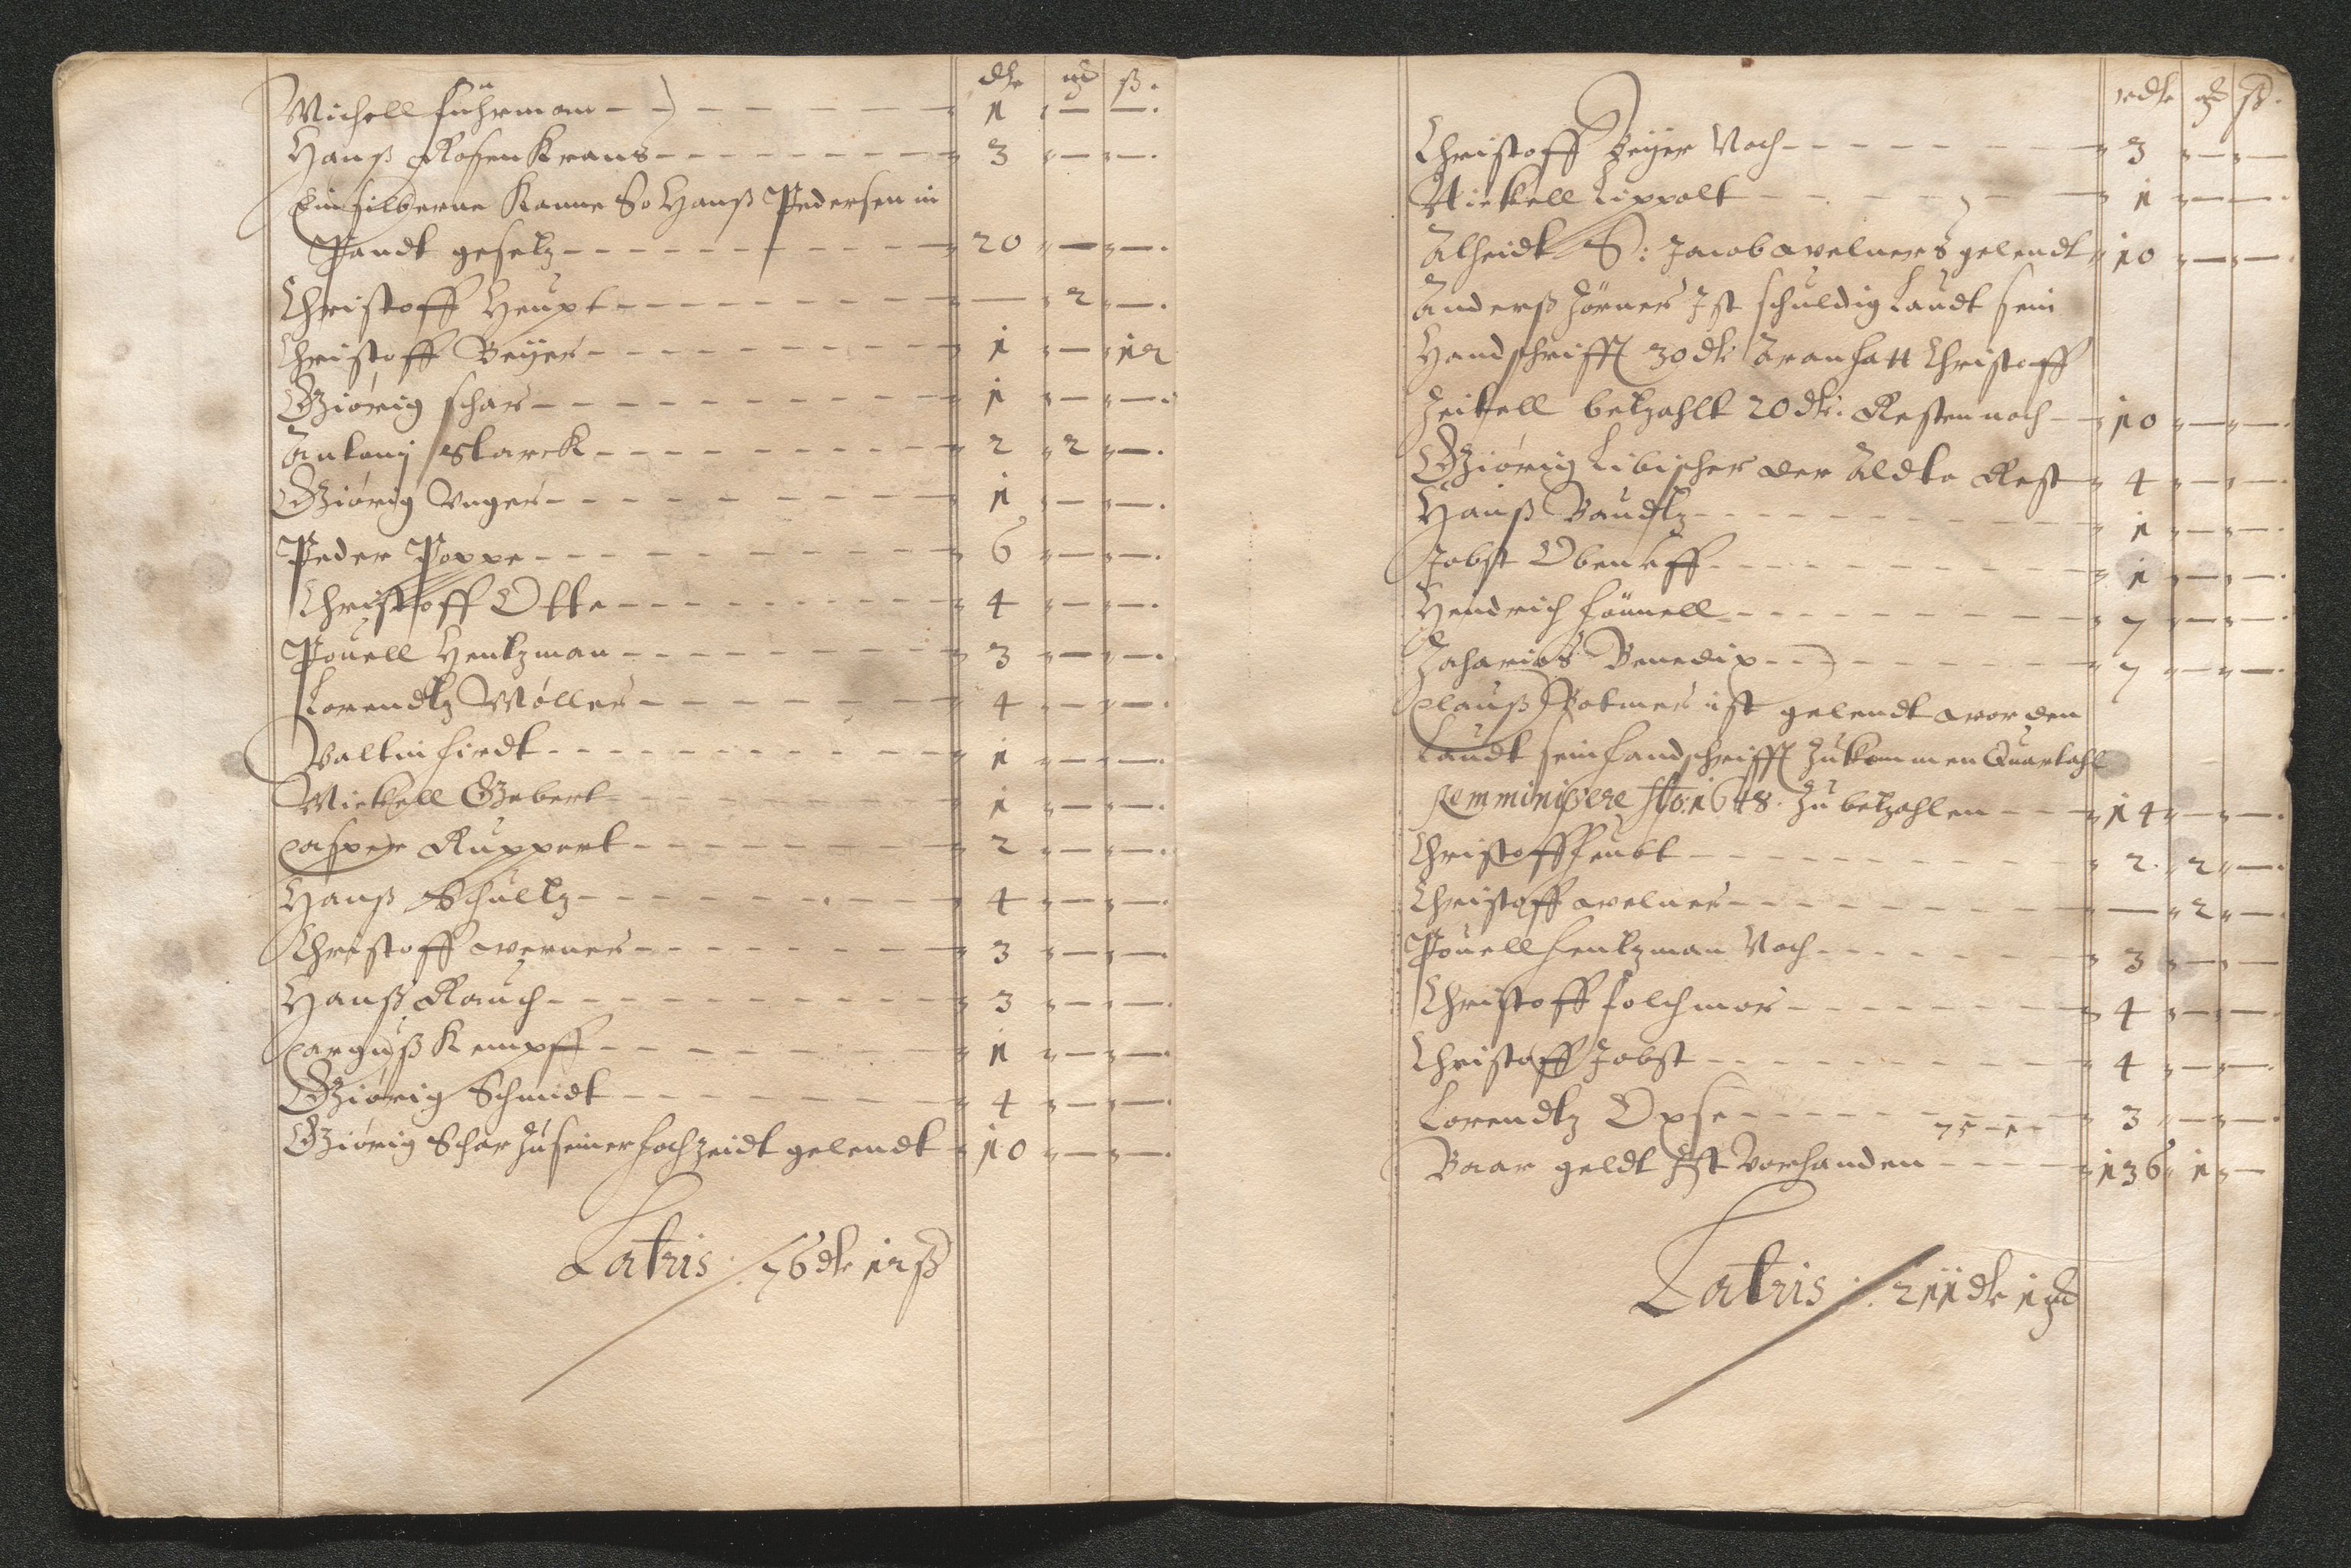 dlr mʒ ß.
Michell fuhrman - - 1 - -
Hanß RosenKrans - - 3 - -
Ein silberne Kanne So Hanß Pedersen in
Pandt gesetz - - 20 - -
Christoff Heupt - - — 2 -
Christoff Beÿer - - 1 - 12
Giörig schar - - 1 - -
Antonij Starck - - 2 2 -
Giörig Unger - - 1 - -
Peder Poppe - - 6 - -
Christoff Otte - - 4 - -
Pouell Hentzman - - 3 - -
Lorendtz Møller - - 4 - -
Valtin hirdt - - 1 - -
Mickell Gebert - - 1 - -
Casper Ruppert - - 2 - -
Hanß Schultz - - 4 - -
Christoff werner - - 3 - -
Hanß Rauch - - 3 - -
Carguß Kempff - - 1 - -
Giörig Schmidt - - 4 - -
Giörig Schar zu seiner hochzeidt gelendt 10 - -
Latris :/: 76 dlr 12 ß
rdlr mʒ ß.
Christoff Beÿer Noch - - 3 - -
Nickell Lippolt - - 1 - -
Alheidt S: Jacob welners gelendt 10 - -
Anderß Hörner Ist schuldig Laudt sein
Handschrifft 30 dlr Daran hatt Christoff
Zeitell betzahlt 20 dlr: Resten noch - 10 - -
Giörig Libischer der Aldte Rest 4 - -
Hanß Baudtz - - 1 - -
Jobst Obenauff - - 1 - -
Hendrich hönnell - - 7 - -
Zacharias Benedix - - 7 - -
Clauß Botmer ist gelendt worden
Laudt sein handschrifft zukommen Quartahl
Remminisere Ao: 1648. zu betzahlen - - 14 - -
Christoff heubt - - 2. 2 -
Christoff welner - - — 2 -
Pouell hentzman Noch - - 3 - -
Christoff folchmar - - 4 - -
Christoff Jobst - - 4 - -
Lorendtz Opse - - 75 - 1 - 3 - -
Baar geldt Ist vorhanden - - 136 1 -
Latris :/: 211 dlr 1 mʒ